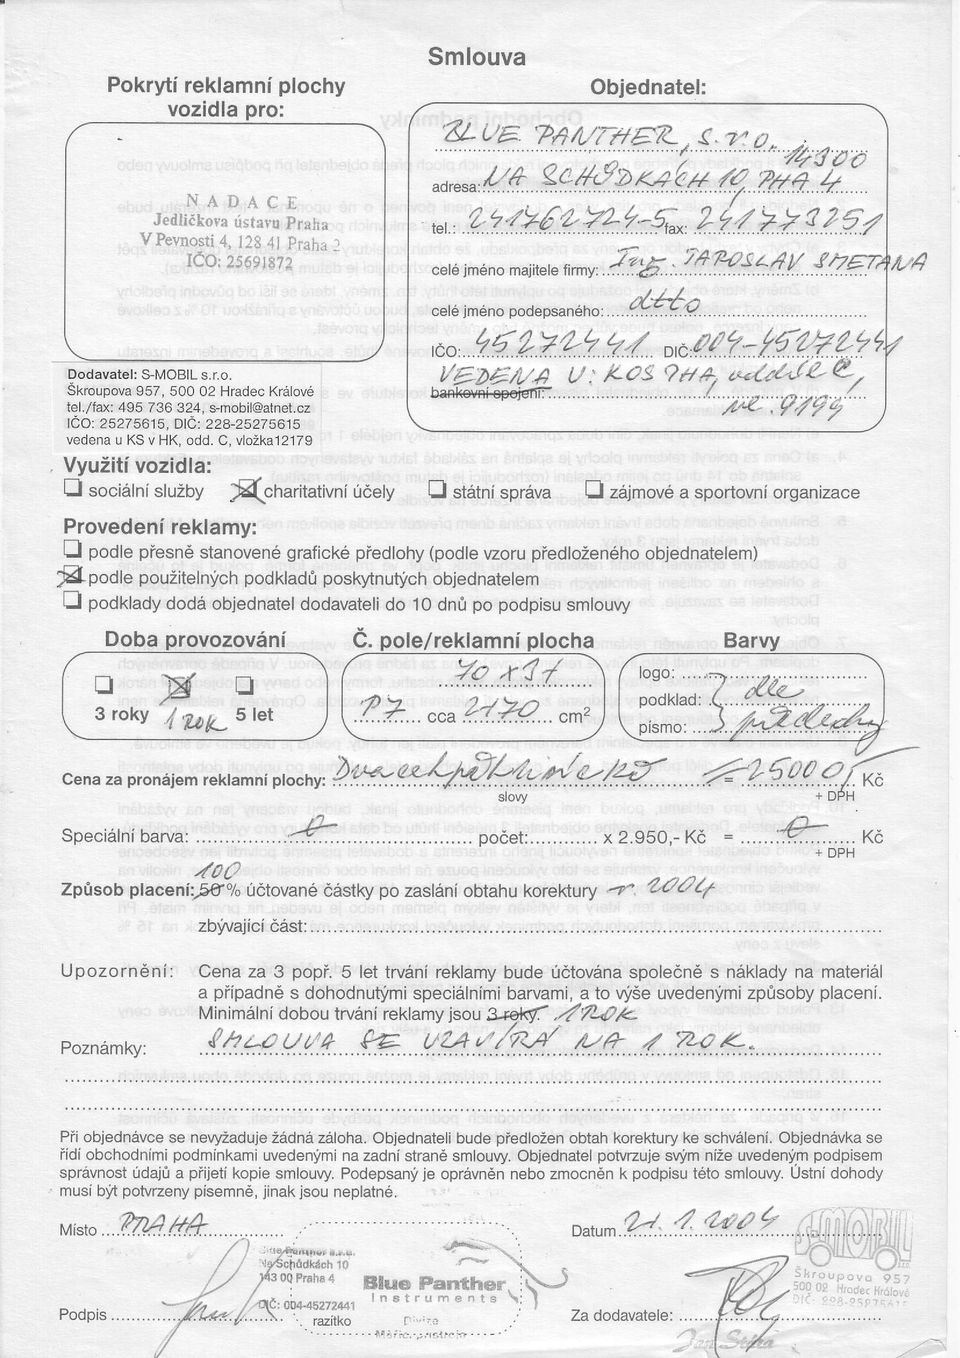 Smlouva
Pokrytí reklamní plochy
vozidla pro:
NADACE
Jedličkova ústavu Praha
V Pevnosti 4, 128 41 Praha 2
IČO: 25691872
Objednatel:
BLUE PANTHER, s.r.o.
14300
adresa: NA SCHŮDKÁCH 10, PHA 4
tel.: 241762724-5 fax: 241773251
celé jméno majitele firmy: Ing. JAROSLAV SMETANA
celé jméno podepsaného: dtto
IČO: 45272441 DIČ: 004-45272441
VEDENA U: KOS PHA, oddíl C,
bankovní spojení: vl. 9199
Dodavatel: S-MOBIL s.r.o.
Škroupova 957, 500 02 Hradec Králové
tel./fax: 495 736 324, s-mobil@atnet.cz
IČO: 25275615, DIČ: 228-25275615
vedena u KS v HK, odd. C, vložka12179
Využití vozidla:
sociální služby charitativní účely státní správa zájmové a sportovní organizace
Provedení reklamy:
podle přesně stanovené grafické předlohy (podle vzoru předloženého objednatelem)
podle použitelných podkladů poskytnutých objednatelem
podklady dodá objednatel dodavateli do 10 dnů po podpisu smlouvy
Doba provozování
3 roky 1 ROK 5 let
Č. pole/reklamní plocha
70 x 31
P7 cca 2170 cm2
Barvy
logo:
podklad: dle
písmo: předlohy
Cena za pronájem reklamní plochy: Dvacetpěttisíc Kč = 25000,- Kč
slovy + DPH
Speciální barva: 0 počet: x 2.950,- Kč = 0 Kč
+ DPH
100
Způsob placení: 50 % účtované částky po zaslání obtahu korektury r. 2004
zbývající část:
Upozornění: Cena za 3 popř. 5 let trvání reklamy bude účtována společně s náklady na materiál
a případně s dohodnutými speciálními barvami, a to výše uvedenými způsoby placení.
Minimální dobou trvání reklamy jsou 3 roky. 1 ROK
Poznámky: SMLOUVA SE UZAVÍRÁ NA 1 ROK.
Při objednávce se nevyžaduje žádná záloha. Objednateli bude předložen obtah korektury ke schválení. Objednávka se
řídí obchodními podmínkami uvedenými na zadní straně smlouvy. Objednatel potvrzuje svým níže uvedeným podpisem
správnost údajů a přijetí kopie smlouvy. Podepsaný je oprávněn nebo zmocněn k podpisu této smlouvy. Ústní dohody
musí být potvrzeny písemně, jinak jsou neplatné.
Místo PRAHA
Datum 21. 1. 2004
Blue Panther s.r.o.
Na Schůdkách 10
143 00 Praha 4
DIČ: 004-45272441
Blue Panther
Instruments
Divize
Podpis razítko
Za dodavatele:
S-MOBIL s.r.o.
Škroupova 957
500 02 Hradec Králové